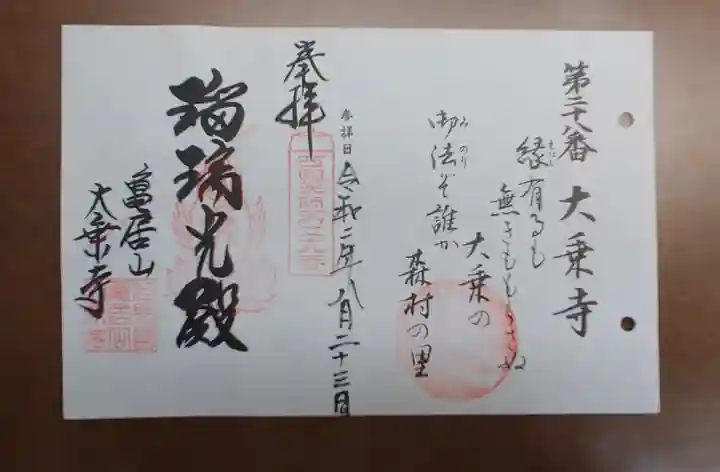 第二十八番 大乗寺
縁有るも
無きも
大乗の
御法ぞ誰か
みのり
森村の里
奉拝
参拝日 令和二年八月二十三日
瑠璃光殿
亀居山
大乗寺